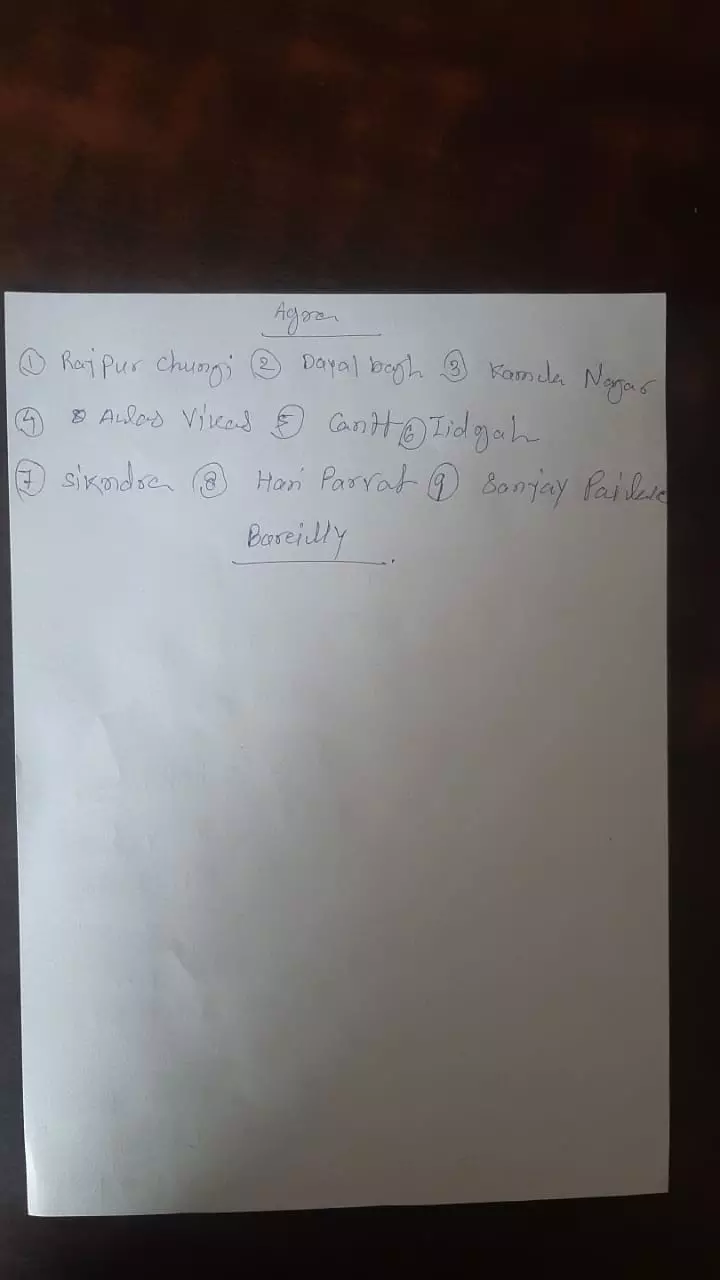 Agra
① Rajpur Chungi ② Dayal bagh ③ Kamla Nagar
④ Awas Vikas ⑤ Cantt ⑥ Iidgah
⑦ Sikndra ⑧ Hari Parvat ⑨ Sanjay
Bareilly